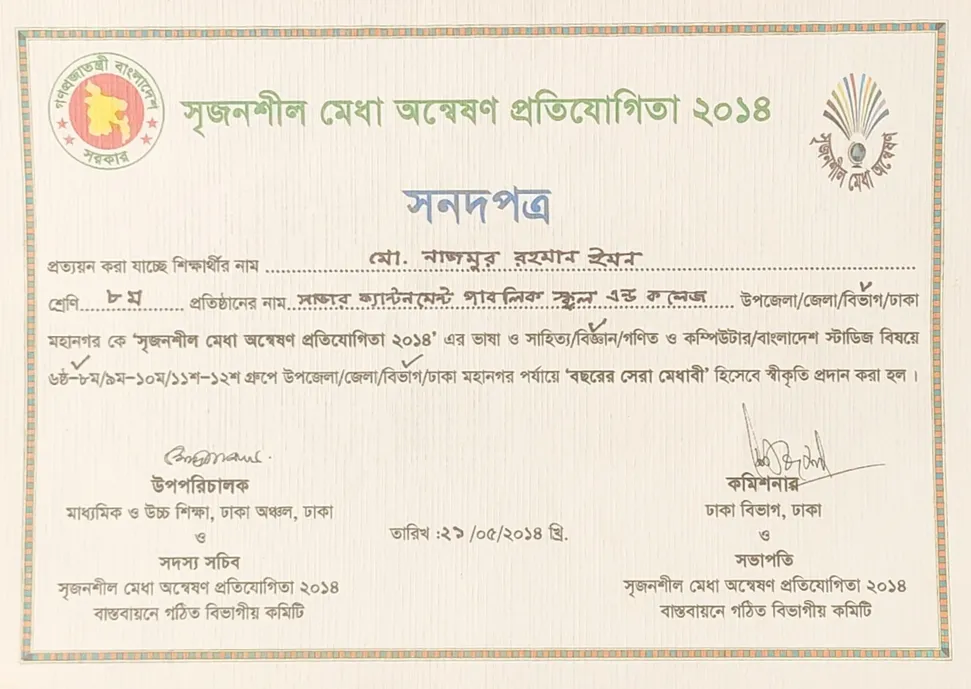 গণপ্রজাতন্ত্রী বাংলাদেশ
সরকার
সৃজনশীল মেধা অন্বেষণ প্রতিযোগিতা ২০১৪
সৃজনশীল মেধা অন্বেষণ
সনদপত্র
প্রত্যয়ন করা যাচ্ছে শিক্ষার্থীর নাম মো. নাজমুর রহমান ইমন
শ্রেণি ৮ম প্রতিষ্ঠানের নাম সাভার ক্যান্টনমেন্ট পাবলিক স্কুল এন্ড কলেজ উপজেলা/জেলা/বিভাগ/ঢাকা
মহানগর কে ‘সৃজনশীল মেধা অন্বেষণ প্রতিযোগিতা ২০১৪’ এর ভাষা ও সাহিত্য/বিজ্ঞান/গণিত ও কম্পিউটার/বাংলাদেশ স্টাডিজ বিষয়ে
৬ষ্ঠ-৮ম/৯ম-১০ম/১১শ-১২শ গ্রুপে উপজেলা/জেলা/বিভাগ/ঢাকা মহানগর পর্যায়ে ‘বছরের সেরা মেধাবী’ হিসেবে স্বীকৃতি প্রদান করা হল ।
উপপরিচালক
মাধ্যমিক ও উচ্চ শিক্ষা, ঢাকা অঞ্চল, ঢাকা
ও
সদস্য সচিব
সৃজনশীল মেধা অন্বেষণ প্রতিযোগিতা ২০১৪
বাস্তবায়নে গঠিত বিভাগীয় কমিটি
তারিখ :২১/০৫/২০১৪ খ্রি.
কমিশনার
ঢাকা বিভাগ, ঢাকা
ও
সভাপতি
সৃজনশীল মেধা অন্বেষণ প্রতিযোগিতা ২০১৪
বাস্তবায়নে গঠিত বিভাগীয় কমিটি